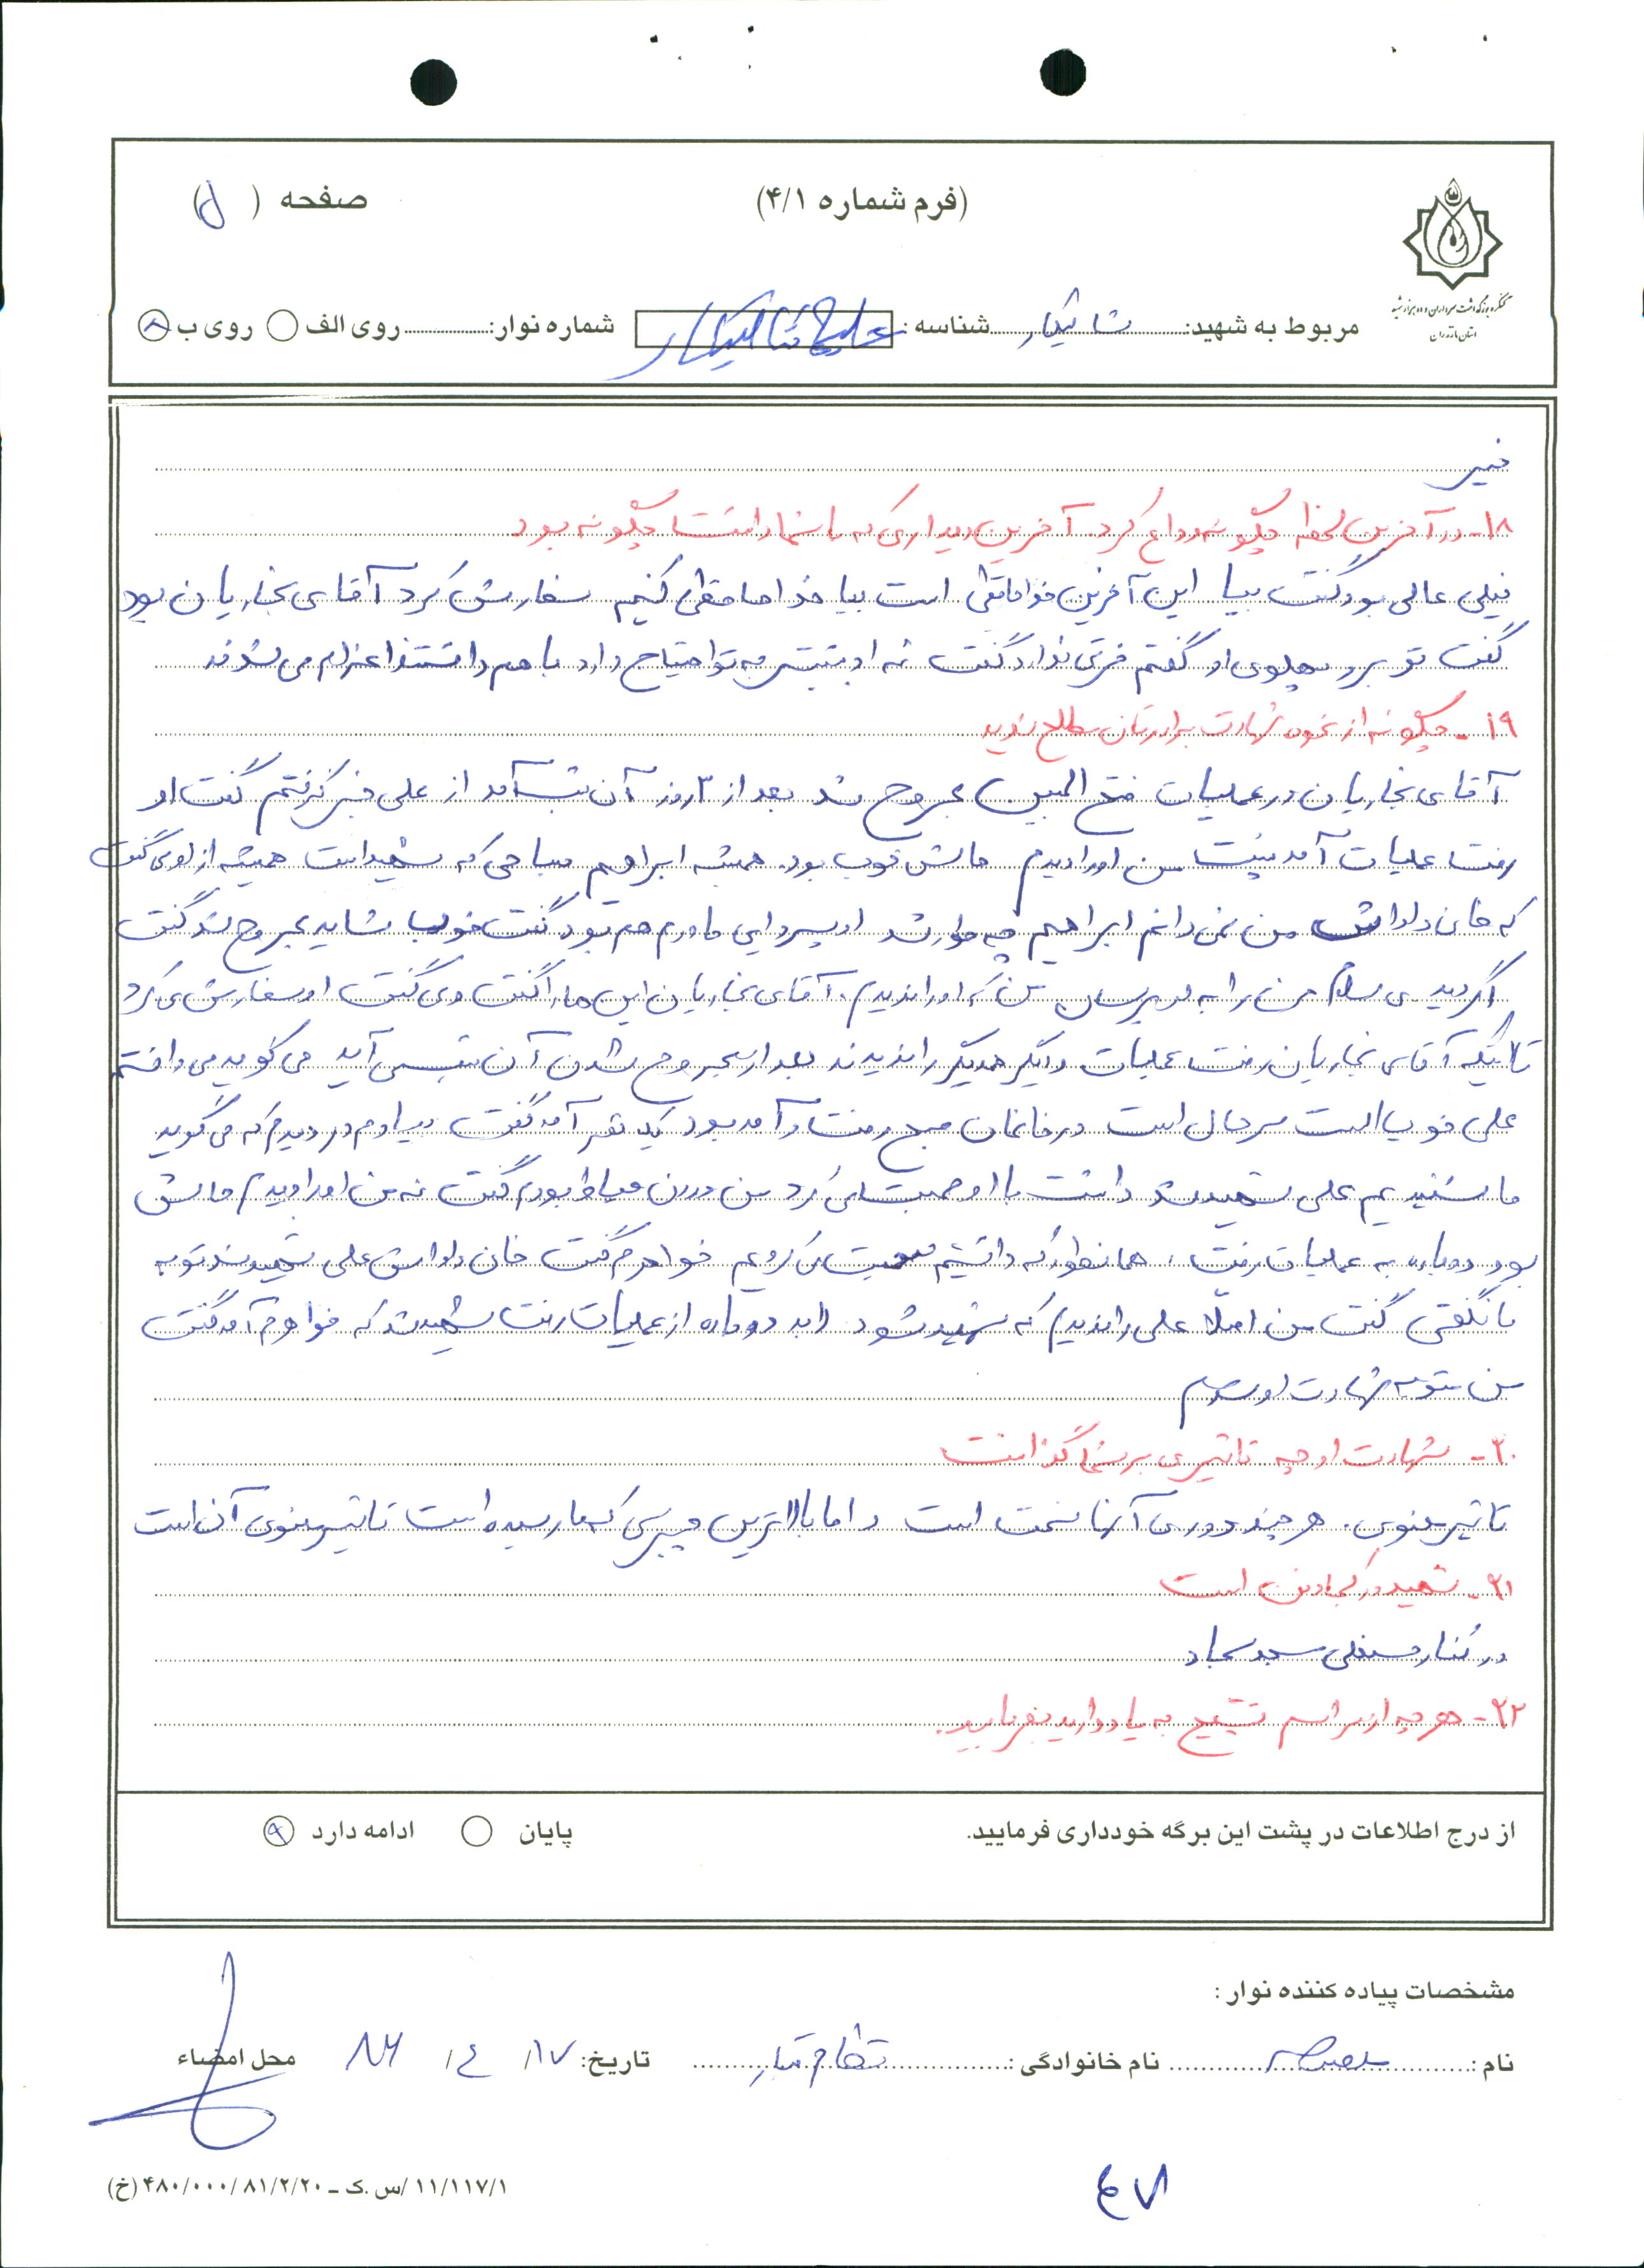 (فرم شماره ۴/۱)
صفحه (۵)
کنگره بزرگداشت سرداران و ده هزار شهید
استان مازندران
مربوط به شهید: شالیکار شناسه: شالیکار شماره نوار: روی الف روی ب
خیر
۱۸- در آخرین لحظه چگونه وداع کرد. آخرین دیداری که با شما داشت چگونه بود
خیلی عالی بود گفت بیا این آخرین خداحافظی است بیا خداحافظی کنیم سفارش کرد آقای نجاریان بود
گفت تو برو پهلوی او گفتم فرقی ندارد گفت نه او بیشتر به تو احتیاج دارد با هم داشتند اعزام می شدند
۱۹- چگونه از نحوه شهادت برادرتان مطلع شدید
آقای نجاریان در عملیات فتح المبین مجروح شد بعد از ۳ روز آن شب آمد از علی خبر گرفتم گفت او
رفت عملیات آمد پشت من او را دیدم حالش خوب بود. همیشه ابراهیم که شهید است همیشه از او می گفت
که خان داداش من نمی دانم ابراهیم چه جوار شد او پسر دایی مادرم هم بود گفت خوب شاید مجروح شد گفت
اگر دیدی سلام من را به او برسان من که او را ندیدم. آقای نجاریان این ها را گفت وی گفت او سفارش می کرد
تا اینکه آقای نجاریان رفت عملیات و دیگر همدیگر را ندیدند بعد از مجروح شدن آن شب می آید می گوید می دانستم
علی خوب است سرحال است در خانمان صبح رفت و آمد بود یک نفر آمد گفت دم در دیدم که می گوید
ما شنیدیم علی شهید شد داشت با او صحبت می کرد من درون حیاط بودم گفت نه من او را دیدم حالش
بود دوباره به عملیات رفت. همانطور که داشتیم صحبت می کردیم خواهرم گفت خان داداش علی شهید شد تو به
ما نگفتی گفت من اصلا علی را ندیدم که شهید شود دوباره از عملیات رفت شهید شد که خواهرم آمد گفت
من متوجه شهادت او شدم
۲۰- شهادت او چه تاثیری بر شما گذاشت
تاثیر معنوی. هر چند دوری آنها سخت است و اما بالاترین چیزی که به ما رسیده است تاثیر معنوی آن است
۲۱- شهید در کجا دفن است
در کنار مسجد سجاد
۲۲- هر چه از مراسم تشییع به یاد دارید بفرمایید.
از درج اطلاعات در پشت این برگه خودداری فرمایید.
پایان ادامه دارد
مشخصات پیاده کننده نوار:
نام: نام خانوادگی: تاریخ: ۱۷/ ۴/ ۸۲ محل امضاء
۱۱/۱۱۷/۱/س.ک – ۴۸۰/۰۰۰/۸۱/۲/۲۰ (خ)